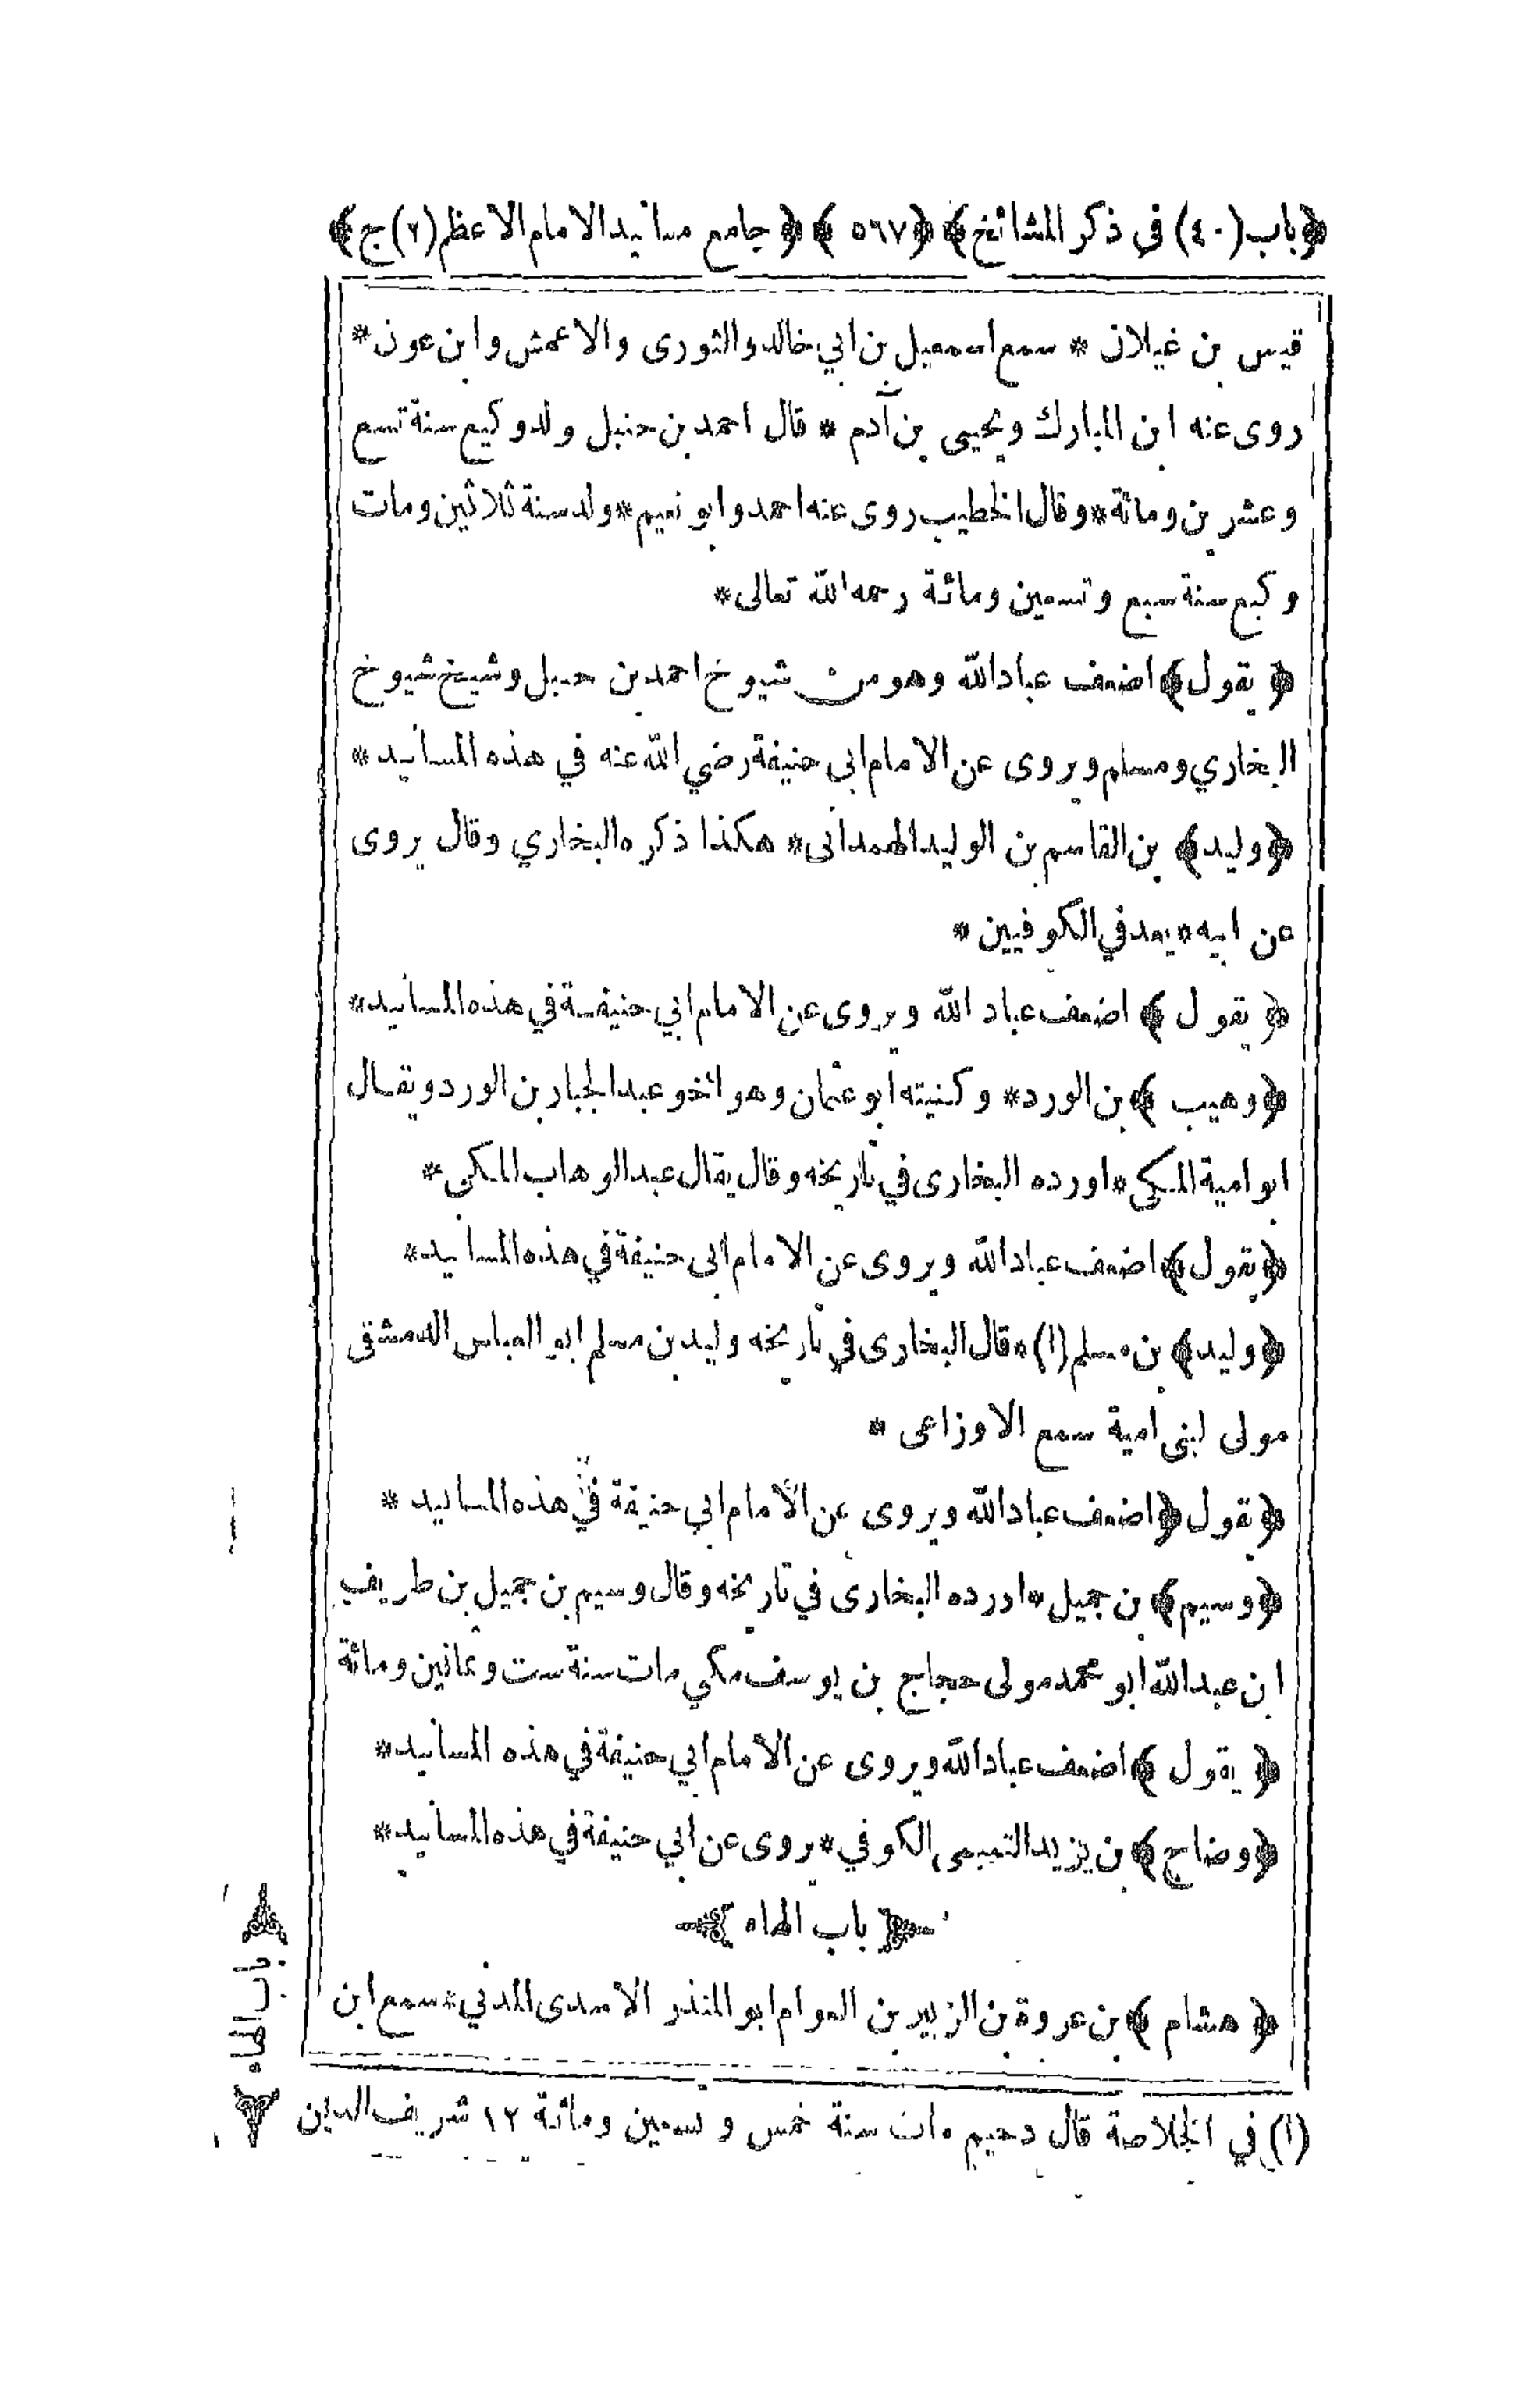 ﴿باب (٤٠) في ذكر المشائخ﴾ ﴿٥٦٧﴾ ﴿جامع مسانيد الامام الاعظم (٢) ج﴾
قيس بن غيلان * سمع اسمعيل بن ابي خالد والثورى والاعمش وابن عون *
روى عنه ابن المبارك ويحيى بن آدم * قال احمد بن حنبل ولد وكيع سنة تسع
وعشرين ومائة * وقال الخطيب روى عنه احمد وابو نعيم * ولد سنة ثلاثين ومات
وكيع سنة سبع وتسعين ومائة رحمه الله تعالى *
﴿يقول﴾ اضعف عباد الله وهو من شيوخ احمد بن حنبل وشيخ شيوخ
البخاري ومسلم ويروى عن الامام ابى حنيفة رضي الله عنه في هذه المسانيد *
﴿وليد﴾ بن القاسم بن الوليد الهمدانى * هكذا ذكره البخاري وقال يروى
عن ابيه * يعد في الكوفيين *
﴿يقول﴾ اضعف عباد الله ويروى عن الامام ابي حنيفة في هذه المسانيد *
﴿وهيب﴾ بن الورد * وكنيته ابو عثمان وهو اخو عبد الجبار بن الورد ويقال
ابو امية المكي * اورده البخارى في تاريخه وقال يقال عبد الوهاب المكي *
﴿يقول﴾ اضعف عباد الله ويروى عن الامام ابى حنيفة في هذه المسانيد *
﴿وليد﴾ بن مسلم (١) * قال البخارى في تاريخه وليد بن مسلم ابو العباس الدمشقى
مولى لبنى امية سمع الاوزاعى *
﴿يقول﴾ اضعف عباد الله ويروى عن الامام ابي حنيفة في هذه المسانيد *
﴿وسيم﴾ بن جميل * اورده البخارى في تاريخه وقال وسيم بن جميل بن طريف
ابن عبد الله ابو محمد مولى حجاج بن يوسف مكي مات سنة ست وثمانين ومائة
﴿يقول﴾ اضعف عباد الله ويروى عن الامام ابي حنيفة في هذه المسانيد *
﴿وضاح﴾ بن يزيد التميمى الكوفي * يروى عن ابي حنيفة في هذه المسانيد *
﴿باب الهاء﴾
﴿هشام﴾ بن عروة بن الزبير بن العوام ابو المنذر الاسدى المدني * سمع ابن
(١) في الخلاصة قال دحيم مات سنة خمس وتسعين ومائة ١٢ شريف الدين
باب الهاء